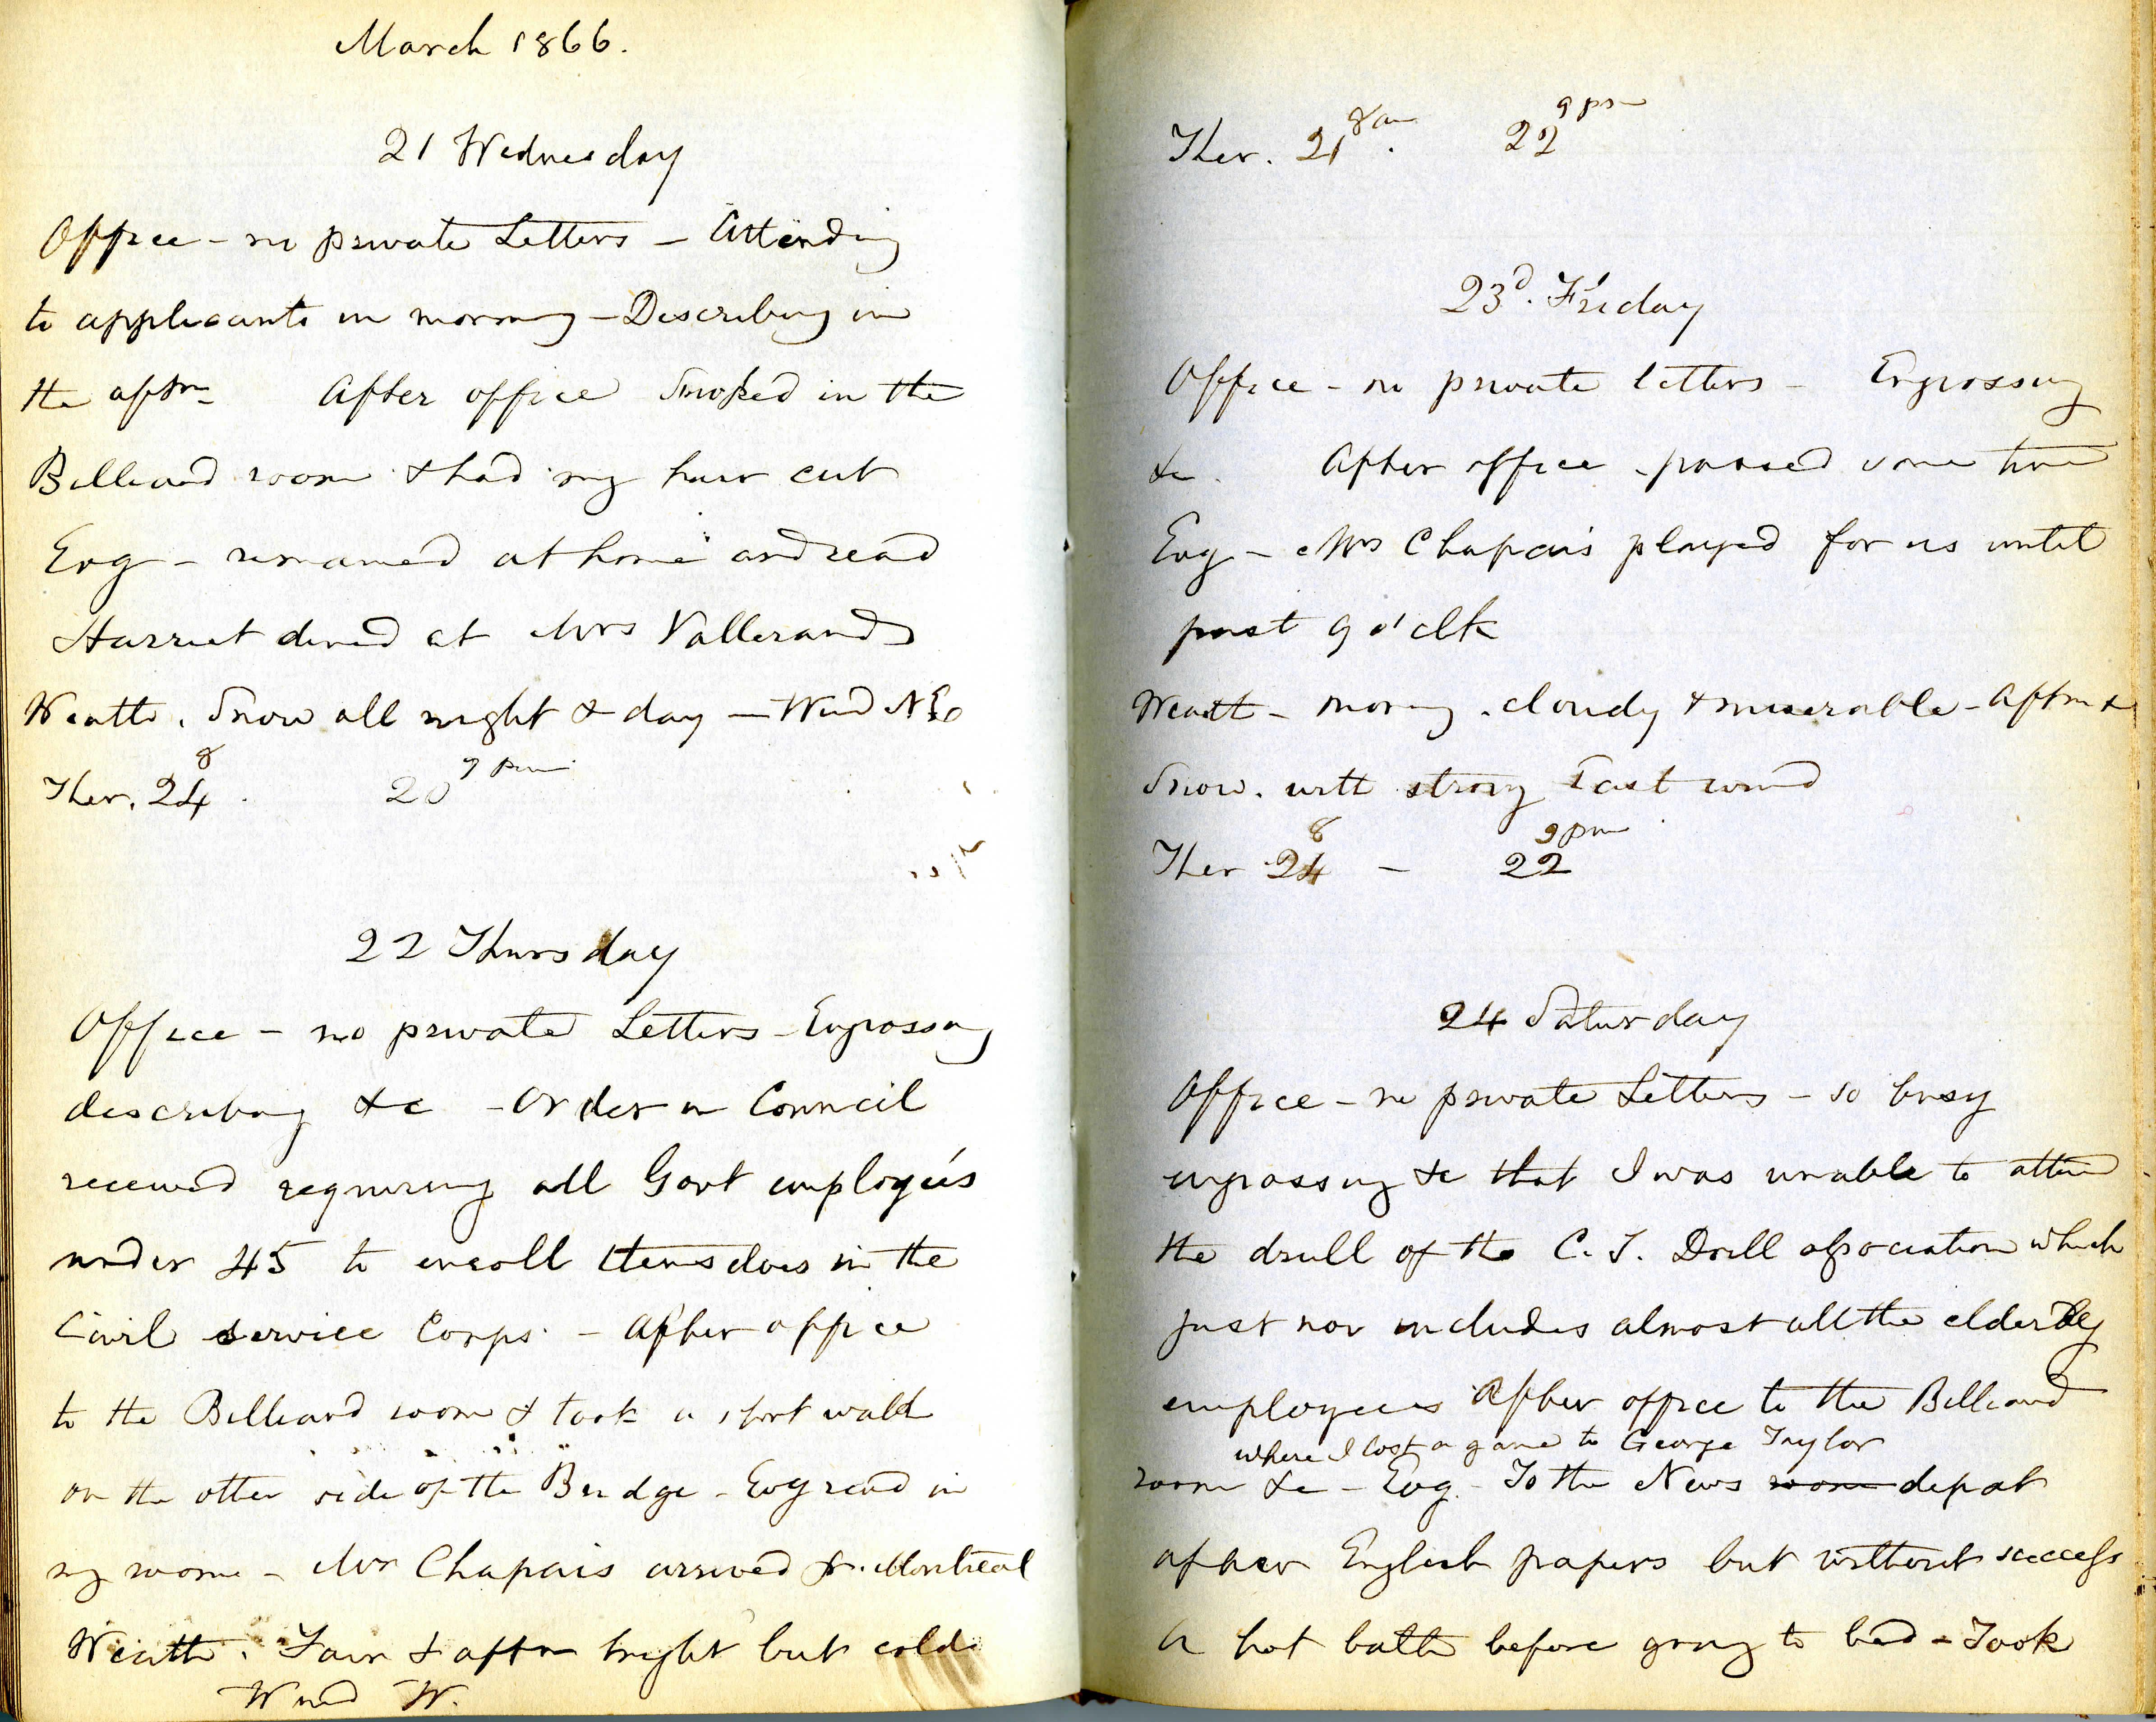 March 1866.
21 Wednesday
Office - no private Letters - Attending
to applicants in morning - Describing in
the aftn After office Smoked in the
Billiard room & had my hair cut
Evg - remained at home and read
Harriet dined at Mrs Vallerands
Weath. Snow all night & day - Wind NE
Ther. 24 8 . 20 9 pm
22 Thursday
Office - no private Letters - Engrossing
describing &c - Order in Council
received requiring all Govt employés
under 45 to enroll themselves in the
Civil service Corps. - After office
to the Billiard room & took a short walk
on the other side of the Bridge - Evg read in
my room - Mr Chapais arrived fr. Montreal
Weath. Fair & aftn bright but cold
Wind W.
Ther. 21 8 am . 22 9 pm
23d. Friday
Office - no private letters - Engrossing
&c. After office - passed some time
Evg - Mrs Chapais played for us until
past 9 o'clk
Weath - morng. cloudy & miserable - Aftn &
Snow. with strong East wind
Ther 24 8 - 22 9 pm
24 Saturday
Office - no private Letters - so busy
engrossing &c that I was unable to attend
the drill of the C. S. Drill association which
just now includes almost all the elderly
employees After office to the Billiard
where I lost a game to George Taylor
room &c - Evg - To the News room depot
after English papers but without success
A hot bath before going to bed - Took